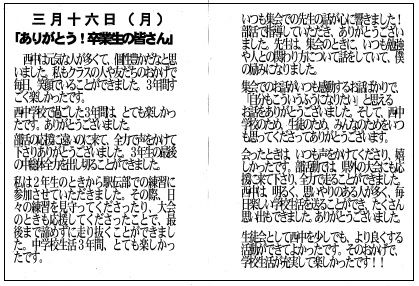 三月十六日(月)
『ありがとう!卒業生の皆さん』
西中は元気な人が多くて、個性豊かだなと思
いました。私もクラスの人や友だちのおかげで
毎日、笑顔でいることができました。3年間す
ごく楽しかったです。
西中学校で過ごした3年間は、とても楽しかっ
たです。ありがとうございました。
部活の応援に遠いのに来て、全力で声をかけて
下さりありがとうございました。3年生の最後
の中総体全力を出し切ることができました。
私は2年生のときから駅伝部での練習に
参加させていただきました。その際、日
々の練習を見守ってくださったり、大会
のときも応援してくださったことで、最
後まで諦めずに走り抜くことができまし
た。中学校生活3年間、とても楽しかっ
たです。
いつも集会での先生の話が心に響きました!
部活で指導していただき、ありがとうござい
ました。先生は、集会のときに、いつも勉強
や人との関わり方について話をしていて、僕
の励みになりました。
集会でのお話がいつも感動するお話ばかりで、
「自分もこういうふうになりたい」と思える
お話をありがとうございました。そして、西中
学校のため、生徒のため、みんなのためをいつ
も思ってくださってありがとうございます。
会ったときは、いつも声をかけてくださり、嬉
しかったです。部活動では、県外の大会にも応
援に来て下さり、全力で走ることができました。
西中は、明るく、思いやりのある人が多く、毎
日楽しい学校生活を送ることができ、たくさん
思い出もできました。ありがとうございました。
生徒会として西中を少しでも、より良くする
活動ができてよかったです。そのおかげで、
学校生活が充実して楽しかったです!!